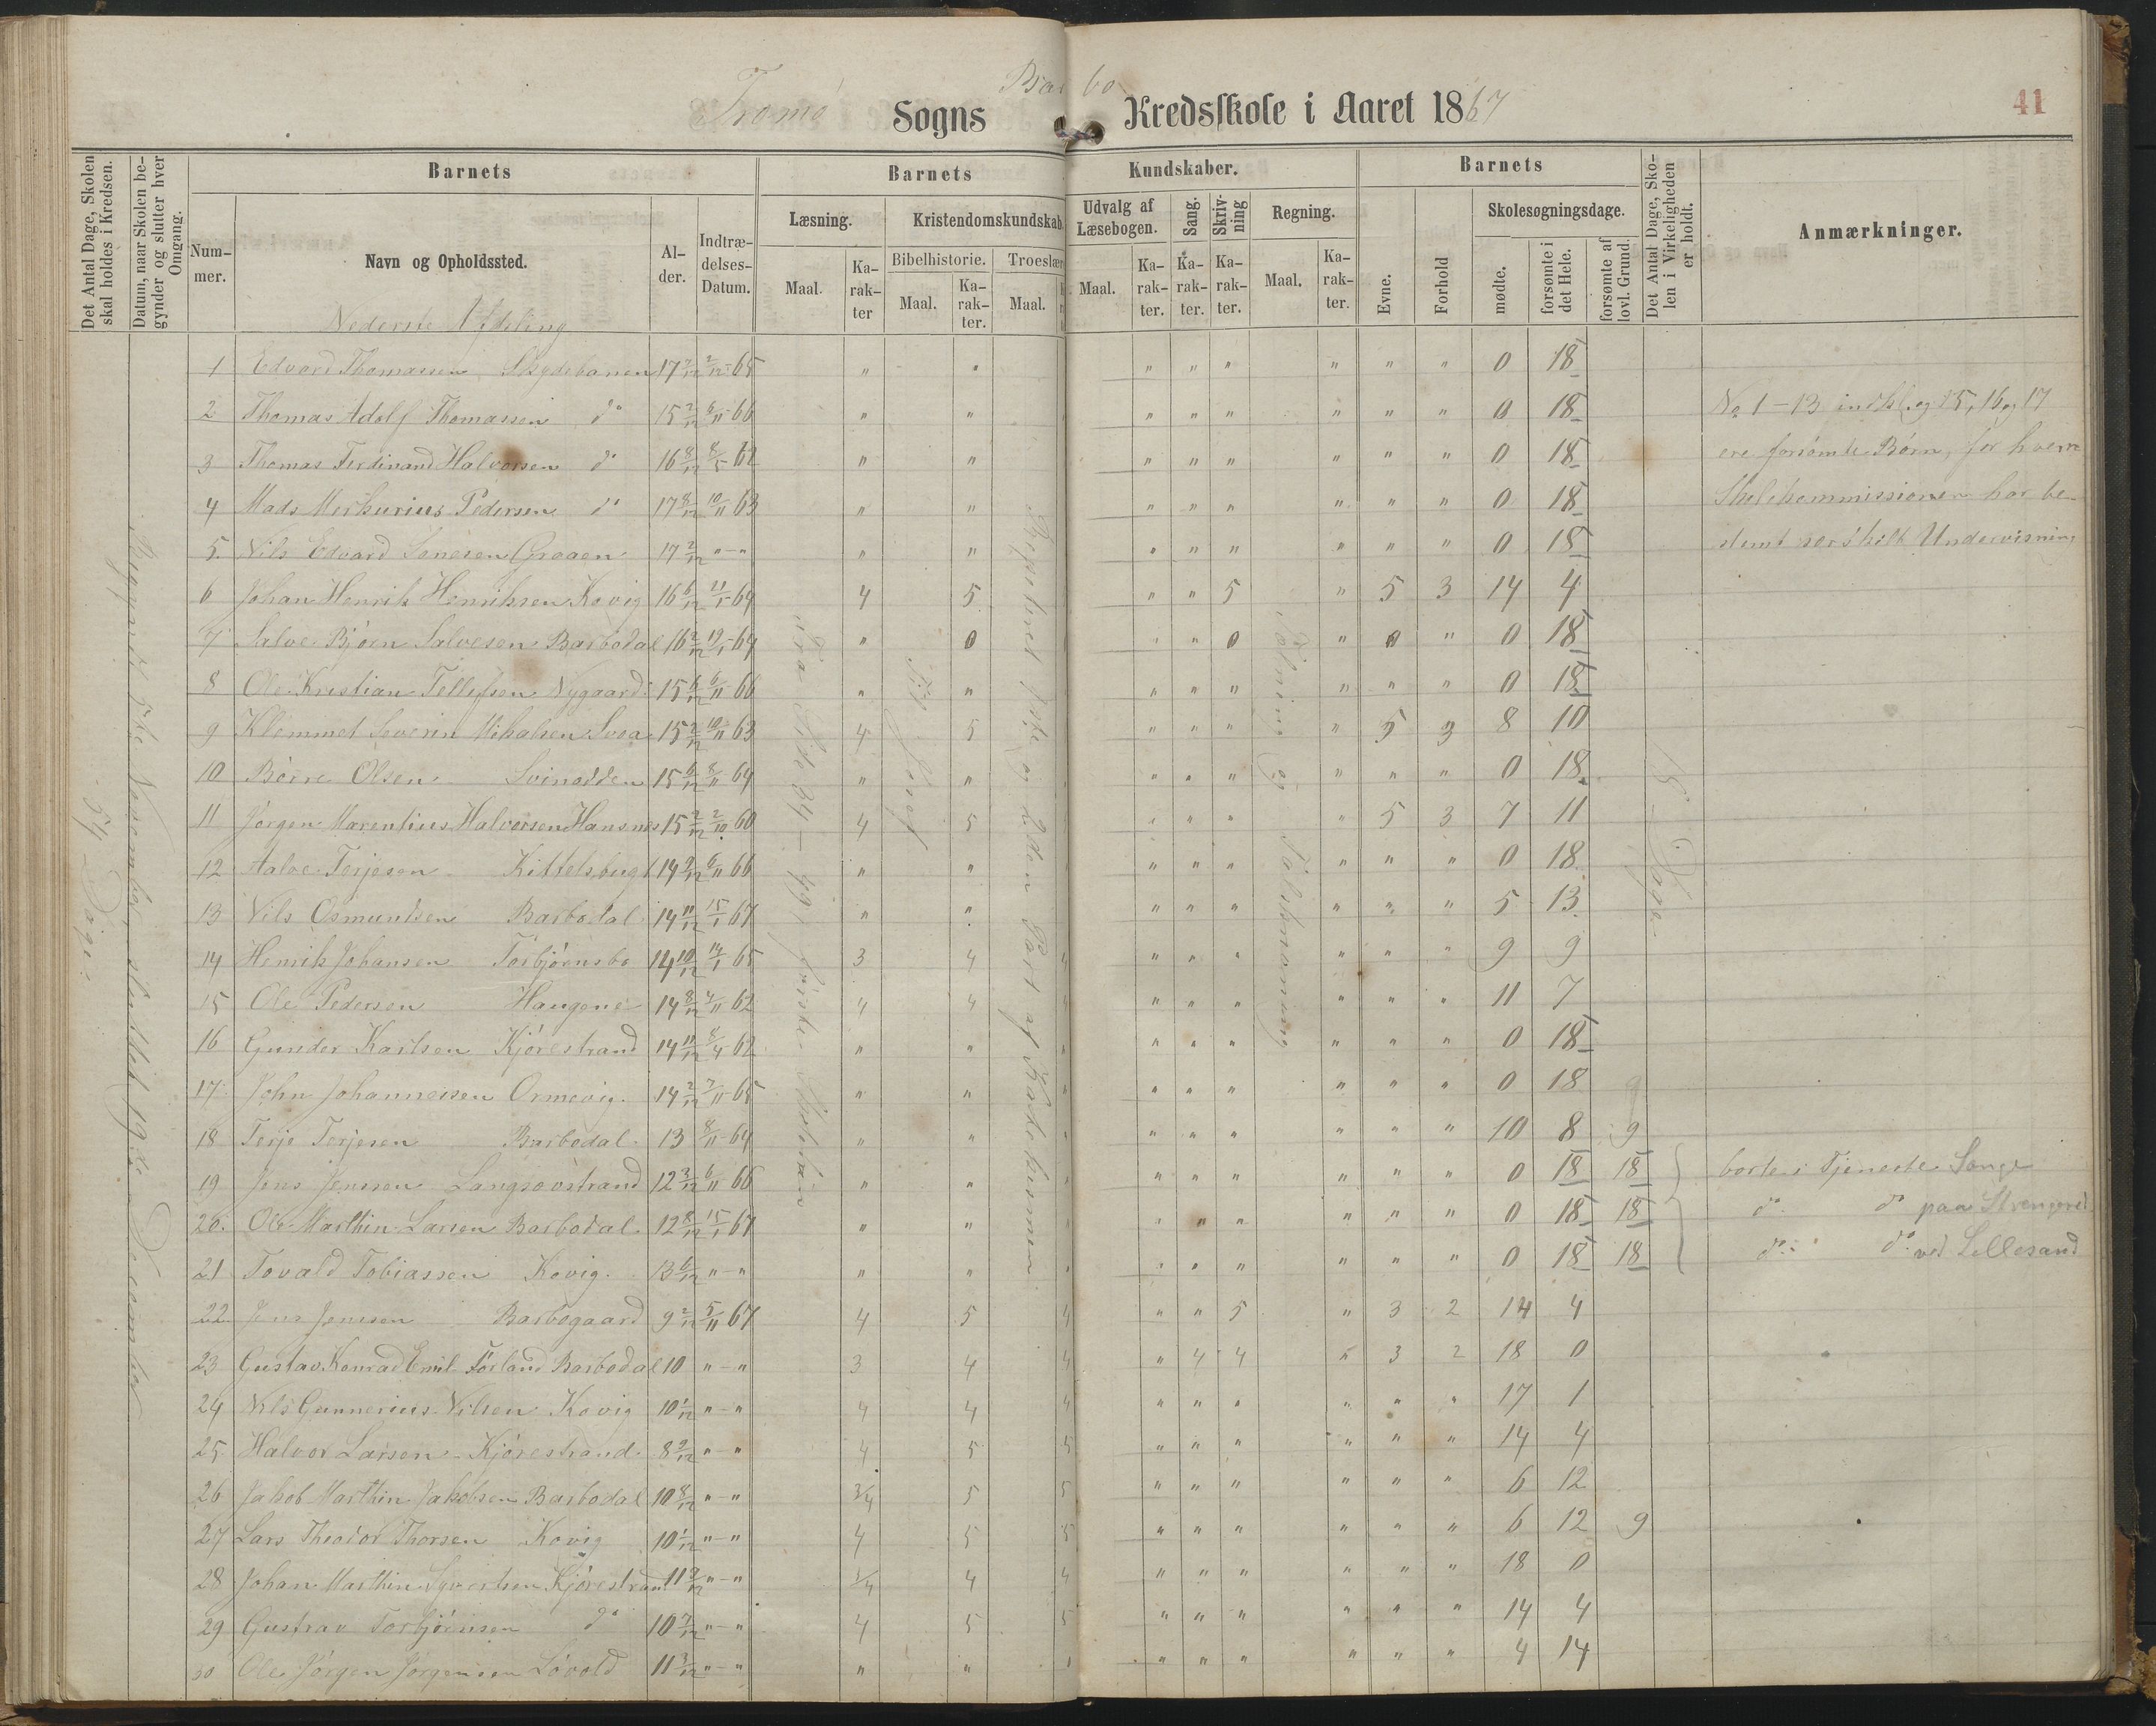 Tromø Sogns Barbo Kredsskole i Aaret 1867
41
Det Antal Dage, Skolen skal holdes i Kredsen.
Datum, naar Skolen begynder og slutter hver Omgang.
Barnets
Barnets Kundskaber.
Barnets
Det Antal Dage, Skolen i Virkeligheden er holdt.
Anmærkninger.
Nummer.
Navn og Opholdssted.
Alder.
Indtrædelses-Datum.
Læsning.
Kristendomskundskab.
Udvalg af Læsebogen.
Sang.
Skrivning
Regning.
Evne.
Forhold
Skolesøgningsdage.
Bibelhistorie.
Troeslær
Maal.
Karakter
Maal.
Karakter.
Maal.
Maal.
Karakter.
Karakter.
Karakter.
Maal.
Karakter.
mødte.
forsømte i det Hele.
forsømte af lovl. Grund.
Nederste Afdeling
1 Edvard Thomassen Skydebanen 17 2/12 2/12-65 " " " " " " " " 0 18
2 Thomas Adolf Thomassen do 15 2/12 6/11-66 " " " " " " " " 0 18 No 1-13 indkl. og 15, 16 og 17
3 Thomas Ferdinand Halvorsen do 16 8/12 8/5 62 " " " " " " " " 0 18 ere forsømte Børn, for hvem
4 Mads Merkurius Pedersen do 17 8/12 10/11 63 " " " " " " " " 0 18 Skolekommissionen har be-
5 Nils Edvard Sørensen Graaen 17 2/12 "-" " " " " " " " " 0 18 stemt særskilt Undervisning
6 Johan Henrik Henriksen Kovig 16 6/12 11/1-64 4 5 " " 5 " 5 3 14 4
7 Salve Bjørn Salvesen Barbodal 16 2/12 19/1-64 " 0 " " 0 " 0 " 0 18
8 Ole Kristian Tellefsen Nygaard 15 6/12 6/11-66 " " " " " " " " 0 18
9 Klemmet Severin Mikalsen Svea 15 2/12 10/11 63 4 5 " " " " 5 3 8 10
10 Børre Olsen Svinodden 15 6/12 8/11 64 " " " " " " " " 0 18
11 Jørgen Marentius Halvorsen Hansnes 15 2/12 2/10 60 4 5 " " " " 5 3 7 11
12 Aalve Terjesen Kittelsbugt 14 9/12 6/11 66 " " " " " " " " 0 18
13 Nils Osmundsen Barbodal 14 11/12 15/1 67 " " " " " " " " 5 13
14 Henrik Johansen Torbjørnsbo 14 10/12 14/1 65 3 4 4 " " " " " " 9 9
15 Ole Pedersen Haugene 14 8/12 4/11 62 4 4 4 " " " " " " 11 7
16 Gunder Karlsen Kjørestrand 14 11/12 8/4 62 " " " " " " " " " 0 18
17 John Johannesen Ormevig 14 2/12 7/11-65 " " " " " " " " " 0 18
18 Terje Terjesen Barbodal 13 8/11-64 " " " " " " " " " 10 8 9
19 Jens Jenssen Langsævstrand 12 3/12 6/11 66 " " " " " " " " " 0 18 18 borte i Tjeneste Songe
20 Ole Marthin Larsen Barbodal 12 8/12 15/1 67 " " " " " " " " 0 18 18 do do paa Strengered
21 Tovald Tobiassen Kovig 13 6/12 "-" " " " " " " " " " 0 18 18 do do ved Lillesand
22 Jens Jenssen Barbogaard 9 2/12 5/11 67 4 5 4 " " 5 " 3 2 14 4
23 Gustav Konrad Emil Førland Barbodal 10 "-" 3 4 4 " 4 4 " 3 2 18 0
24 Nils Gunnerius Nilsen Kovig 10 1/12 "-" 4 4 4 " " " " " " 17 1
25 Halvor Larsen Kjørestrand 8 9/12 "-" 4 5 5 " " " " " " 14 4
26 Jakob Marthin Jakobsen Barbodal 10 8/12 "-" 3/4 5 5 " " " " " " 6 12
27 Lars Theodor Thorsen Kovig 10 1/12 "-" 4 5 5 " " " " " " 6 12 9
28 Johan Marthin Syvertsen Kjørestrand 11 9/12 "-" 4 4 " " " " " " 18 0
29 Gustav Torbjørnsen do 10 7/12 "-" 4 5 5 " " " " " " 14 4
30 Ole Jørgen Jørgensen Løvold 11 3/12 "-" " " " " " " " " " 4 14
54 Dage
Begyndt 5te November, sluttet 19de December
Fra Side 34-49, første Skoletrin
Til Josef
Repeteret 1ste og 2den Part af Katekismen
Tælning og Talskrivning
18 Dage